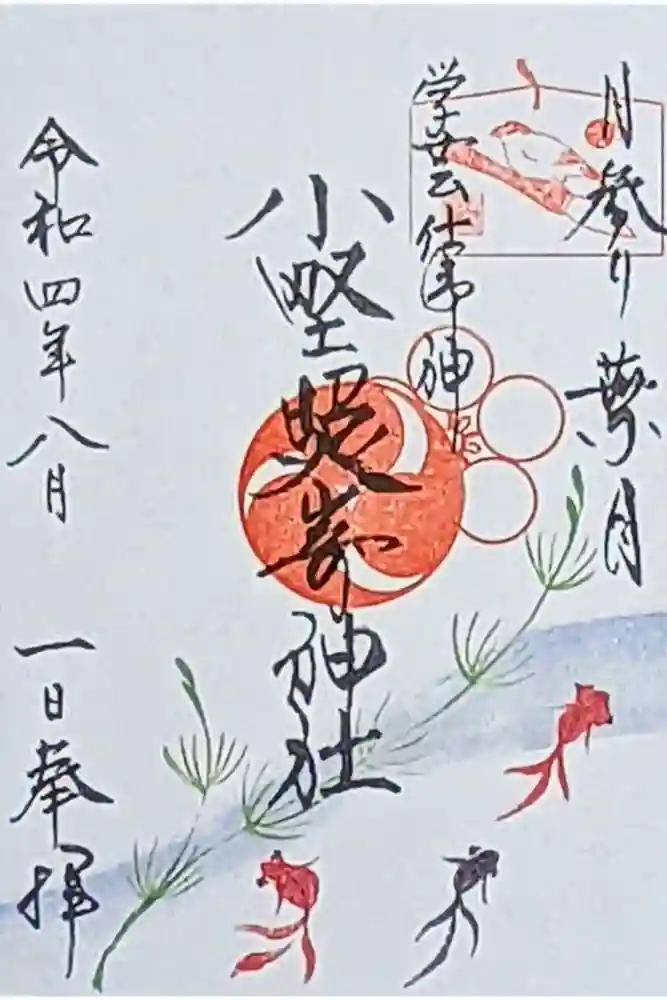 月参り 葉月
学芸仕事神
小野照嵜神社
令和四年八月 一日奉拝